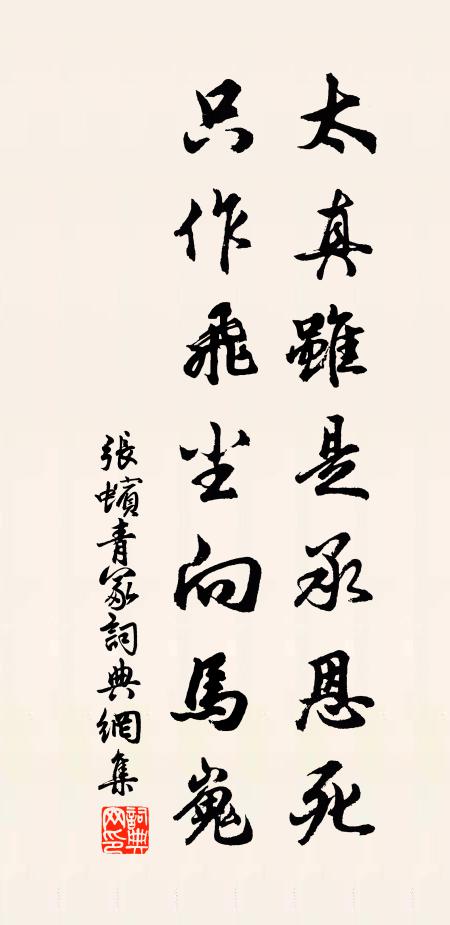 太真雖是承恩死
只作飛尘向馬嵬
張蠙青冢詞典網集
詞典网印